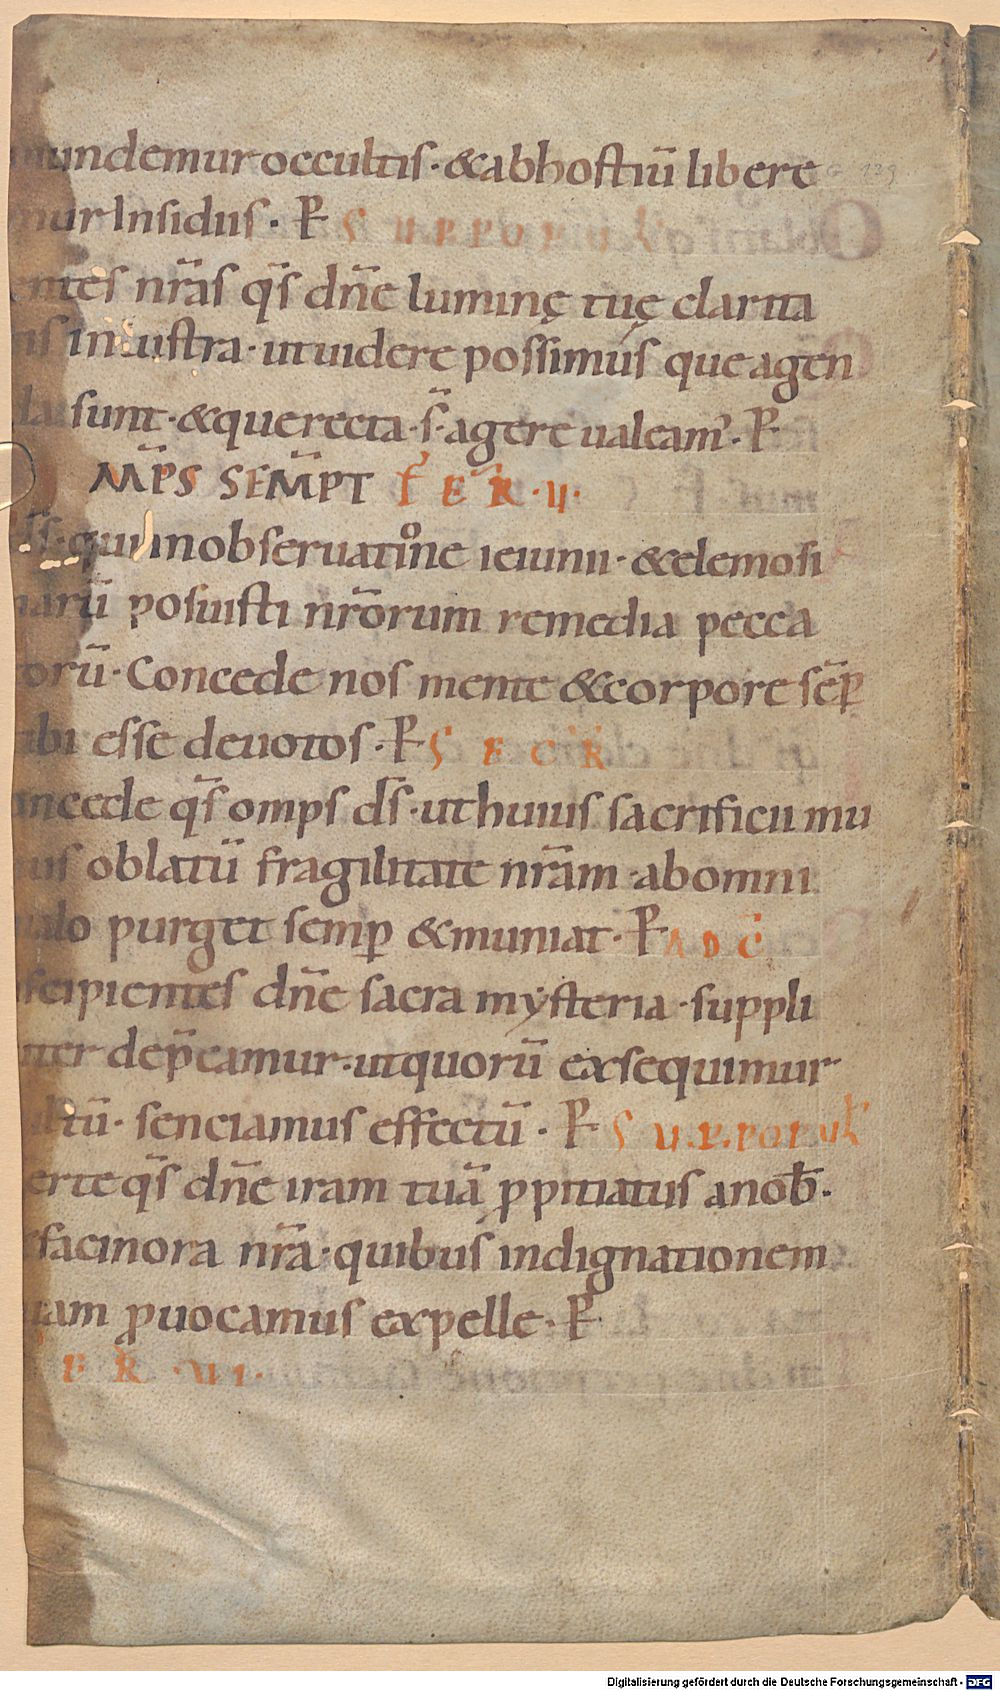 mundemur occultis· &abhostiū libere
mur Insidiis· P̄ S U·P·P O P U L̄
entes nr̄as q̄s dn̄e luminę tuę clarita
tis In lustra· utuidere possimus que agen
da sunt·&querecta·s̄·agere ualeam'· P̄
MP̄S SEM̄PT F̄ E R̄·V·
ds̄·qui inobseruatione ieiunii·&elemosi
narū posuisti nr̄orum remedia pecca
torū· Concede nos mente &corpore sēp̄
tibi esse deuotos· P̄ S E C R̄
oncede q̄s omps ds̄·ut huius sacrificii mu
nus oblatū fragilitate nr̄am ·abomni
malo purget semp̲ &muniat· P̄ A D C̄
scipientes dn̄e sacra mysteria ·suppli
citer dep̄camur·utquorū exsequimur
cultū· senciamus effectū· P̄ S U·P·POPUL̄
erte q̄s dn̄e iram tuā ꝓpitiatus anob̄·
&facinora nr̄a·quibus indignationem
tuam ꝓuocamus expelle· P̄
E R̄·VI·
G 129
Digitalisierung gefördert durch die Deutsche Forschungsgemeinschaft - DFG